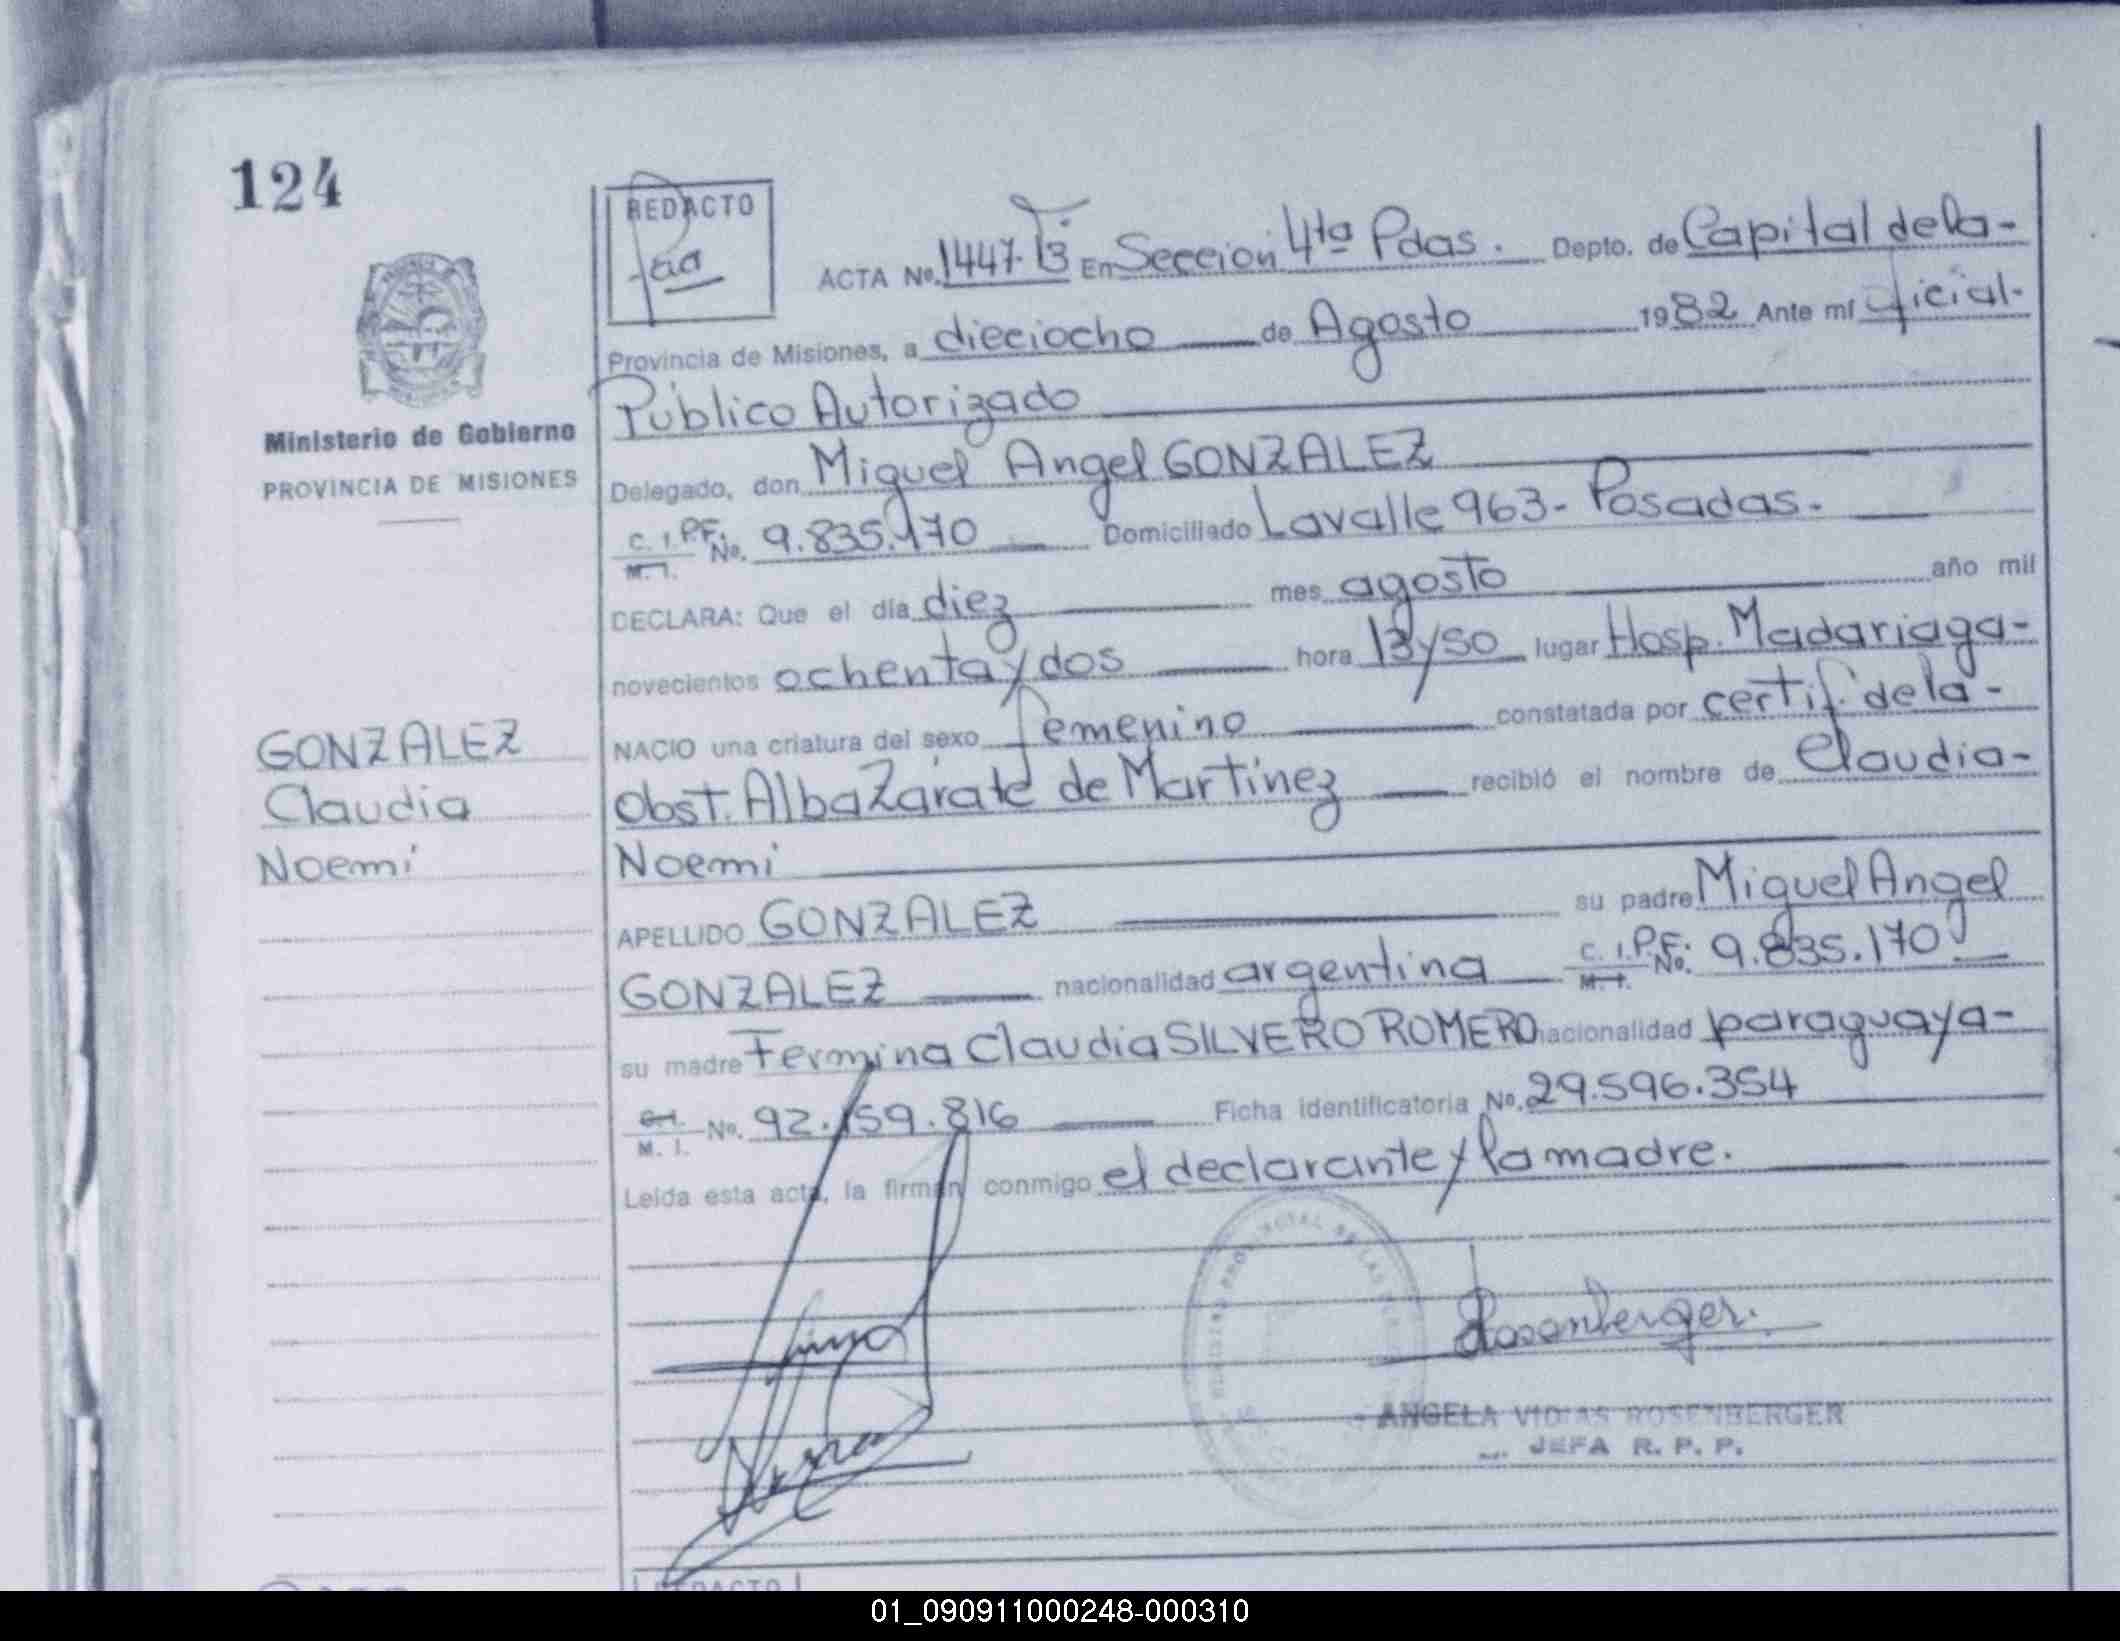 124
REDACTO
ACTA No. 1447-T3 En Seccion 4ta Pdas. Depto. de Capital de la-
Provincia de Misiones, a dieciocho de Agosto 1982 Ante mí oficial-
Público Autorizado
Ministerio de Gobierno
PROVINCIA DE MISIONES
Delegado, don Miguel Angel GONZALEZ
C. I. P.F. No. 9.835.170 Domiciliado Lavalle 963- Posadas.
M. I.
DECLARA: Que el día diez mes agosto año mil
novecientos ochenta y dos hora 13 y 50 lugar Hosp. Madariaga-
NACIO una criatura del sexo femenino constatada por certif. de la-
Obst. Alba Zárate de Martinez recibió el nombre de Claudia-
Noemi
GONZALEZ
Claudia
Noemi
APELLIDO GONZALEZ su padre Miguel Angel
GONZALEZ nacionalidad argentina C. I. P.F. No. 9.835.170
M. I.
su madre Fermina Claudia SILVERO ROMERO nacionalidad paraguaya-
C. I. No. 92.159.816 Ficha identificatoria No. 29.596.354
M. I.
Leída esta acta, la firman conmigo el declarante y la madre.
Rosenberger.
ANGELA VIDIAS ROSENBERGER
JEFA R. P. P.
REDACTO
01_090911000248-000310